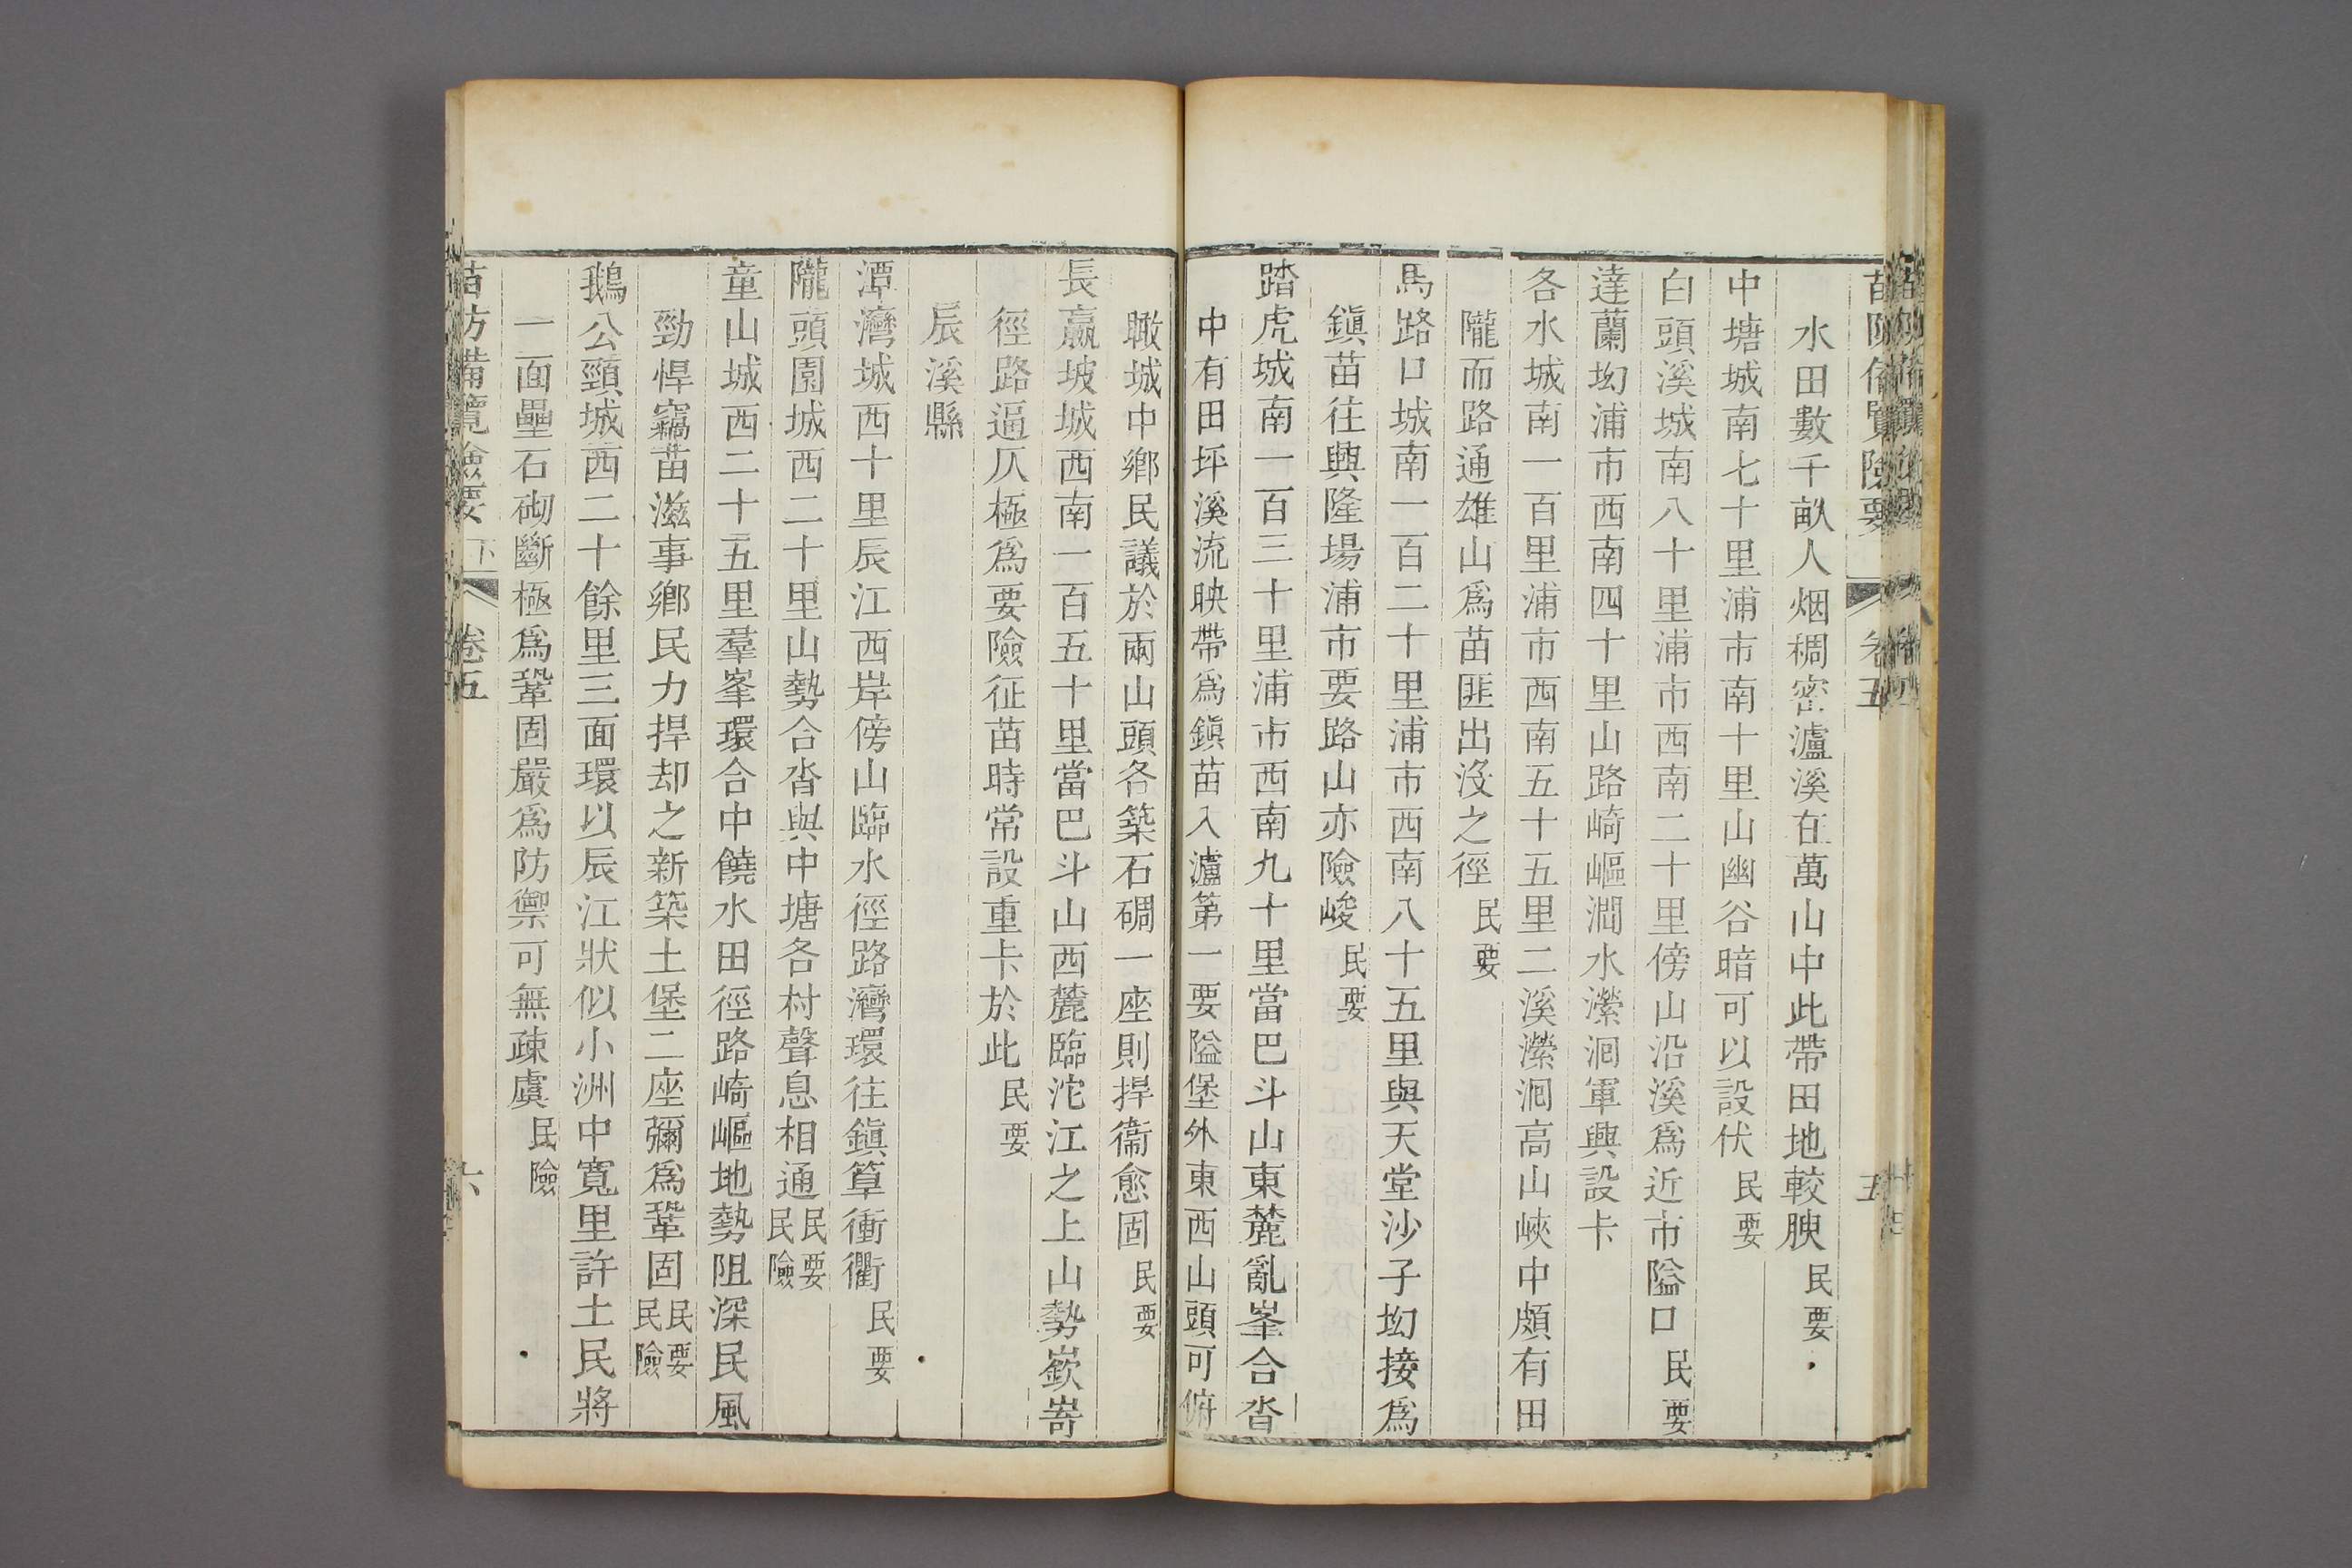 苗防備覽險要 卷五 五
水田數千畝人烟稠密瀘溪在萬山中此帶田地較腴民要
中塘城南七十里浦市南十里山幽谷暗可以設伏民要
白頭溪城南八十里浦市西南二十里傍山沿溪爲近市隘口民要
達蘭坳浦市西南四十里山路崎嶇澗水瀠洄軍興設卡
各水城南一百里浦市西南五十五里二溪瀠洄高山峽中頗有田
隴而路通雄山爲苗匪出沒之徑民要
馬路口城南一百二十里浦市西南八十五里與天堂沙子坳接爲
鎭苗往興隆場浦市要路山亦險峻民要
踏虎城南一百三十里浦市西南九十里當巴斗山東麓亂峯合沓
中有田坪溪流映帶爲鎭苗入瀘第一要隘堡外東西山頭可俯
瞰城中鄉民議於兩山頭各築石碉一座則捍衞愈固民要
長嬴坡城西南一百五十里當巴斗山西麓臨沱江之上山勢嶔崎
徑路逼仄極爲要險征苗時常設重卡於此民要
辰溪縣
潭灣城西十里辰江西岸傍山臨水徑路灣環往鎭筸衝衢民要
隴頭園城西二十里山勢合沓與中塘各村聲息相通民要民險
童山城西二十五里羣峯環合中饒水田徑路崎嶇地勢阻深民風
勁悍竊苗滋事鄉民力捍却之新築土堡二座彌爲鞏固民要民險
鵝公頸城西二十餘里三面環以辰江狀似小洲中寬里許土民將
一面壘石砌斷極爲鞏固嚴爲防禦可無疎虞民險
苗防備覽險要下 卷五 六